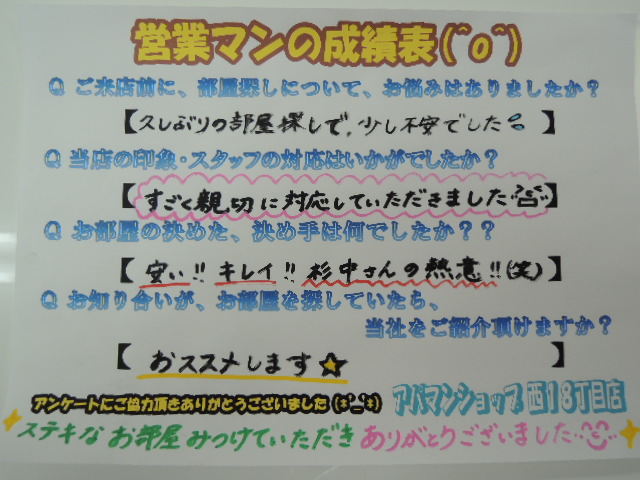 営業マンの成績表(^o^)
Q ご来店前に、部屋探しについて、お悩みはありましたか？
【久しぶりの部屋探しで、少し不安でした】
Q 当店の印象・スタッフの対応はいかがでしたか？
【すごく親切に対応していただきました】
Q お部屋の決めた、決め手は何でしたか？？
【安い!! キレイ!! 杉中さんの熱意!!(笑)】
Q お知り合いが、お部屋を探していたら、
当社をご紹介頂けますか？
【おススメします★】
アンケートにご協力頂きありがとうございました(*^_^*)
アパマンショップ 西18丁目店
ステキなお部屋みつけていただきありがとうございました